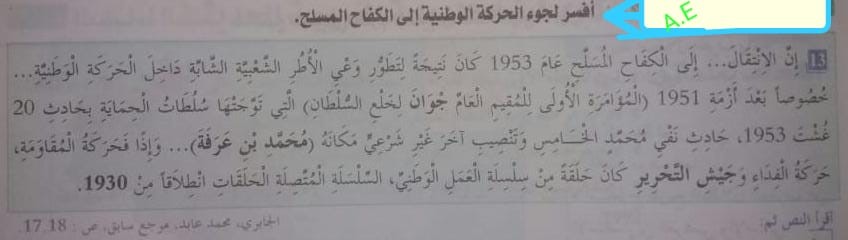 أفسر لجوء الحركة الوطنية إلى الكفاح المسلح.
A.E
13 إِنَّ الِانْتِقَالَ... إِلَى الْكِفَاحِ الْمُسَلَّحِ عَامَ 1953 كَانَ نَتِيجَةً لِتَطَوُّرِ وَعْيِ الْأُطُرِ الشَّعْبِيَّةِ الشَّابَّةِ دَاخِلَ الْحَرَكَةِ الْوَطَنِيَّةِ...
خُصُوصاً بَعْدَ أَزْمَةِ 1951 (الْمُؤَامَرَةِ الْأُولَى لِلْمُقِيمِ الْعَامِّ جْوَانْ لِخَلْعِ السُّلْطَانِ) الَّتِي تَوَّجَتْهَا سُلُطَاتُ الْحِمَايَةِ بِحَادِثِ 20
غُشْتَ 1953، حَادِثِ نَفْيِ مُحَمَّدٍ الْخَامِسِ وَتَنْصِيبِ آخَرَ غَيْرِ شَرْعِيٍّ مَكَانَهُ (مُحَمَّد بْنِ عَرَفَةَ)... وَإِذًا فَحَرَكَةُ الْمُقَاوَمَةِ،
حَرَكَةُ الْفِدَاءِ وَجَيْشِ التَّحْرِيرِ كَانَ حَلَقَةً مِنْ سِلْسِلَةِ الْعَمَلِ الْوَطَنِيِّ، السِّلْسَلَةِ الْمُتَّصِلَةِ الْحَلَقَاتِ انْطِلَاقاً مِنْ 1930.
الجابري، محمد عابد، مرجع سابق، ص : 17.18.
أقرأ النص ثم: